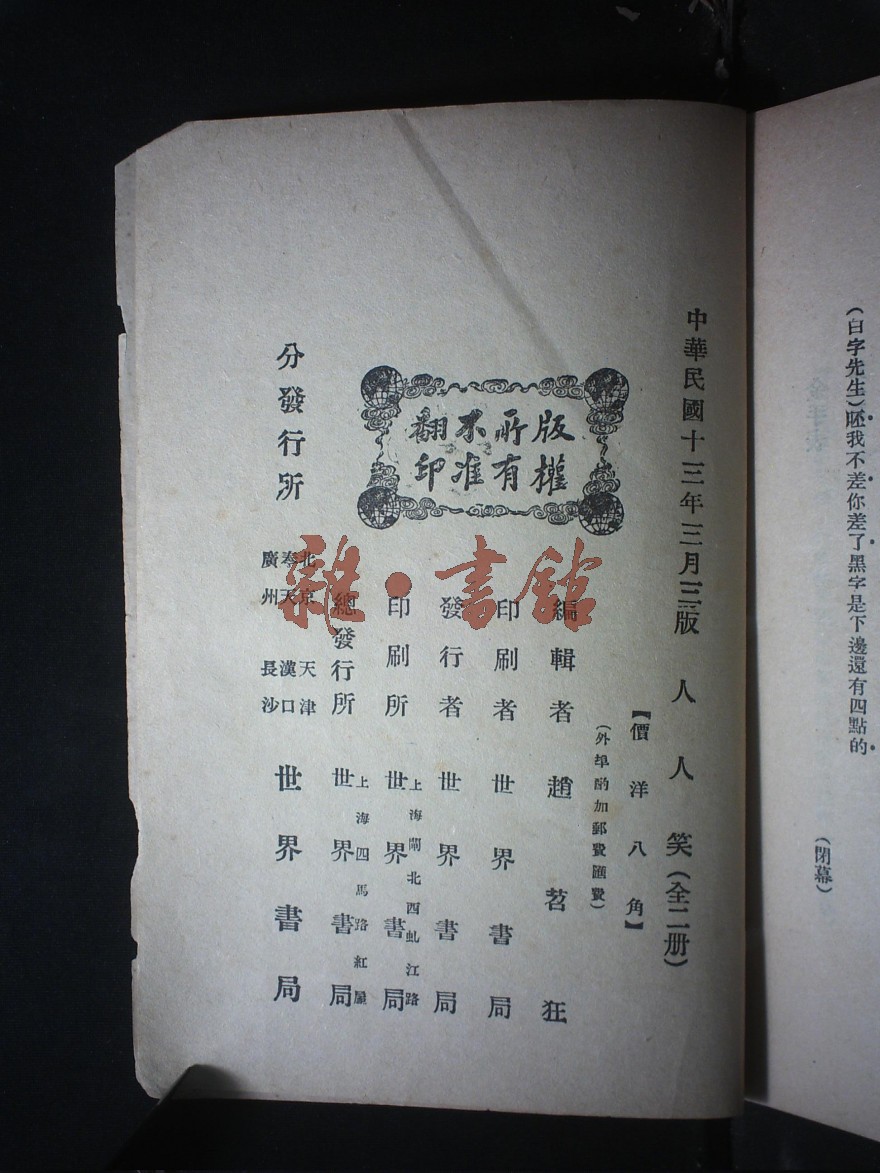 (白字先生)呸我不差你差了黑字是下邊還有四點的
(閉幕)
中華民國十三年三月三版
人人笑(全二册)
【價洋八角】
(外埠酌加郵費匯費)
版權所有
不准翻印
編輯者 趙苕狂
印刷者 世界書局
發行者 世界書局
印刷所 上海閘北西虬江路 世界書局
總發行所 上海四馬路紅屋 世界書局
分發行所
北京 天津
奉天 漢口
廣州 長沙
世界書局
雜·書館